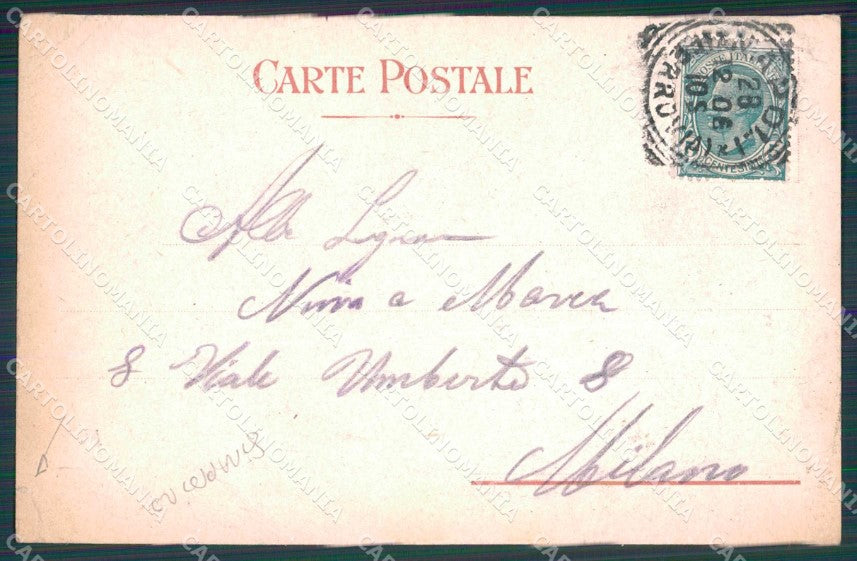 CARTE POSTALE
NAPOLI FERROVIA
28
2.06
10S
POSTE ITALIANE
CENTESIMI
Alla Signora
a Marca
8 Viale Umberto 8
Milano
CARTOLINOMANIA